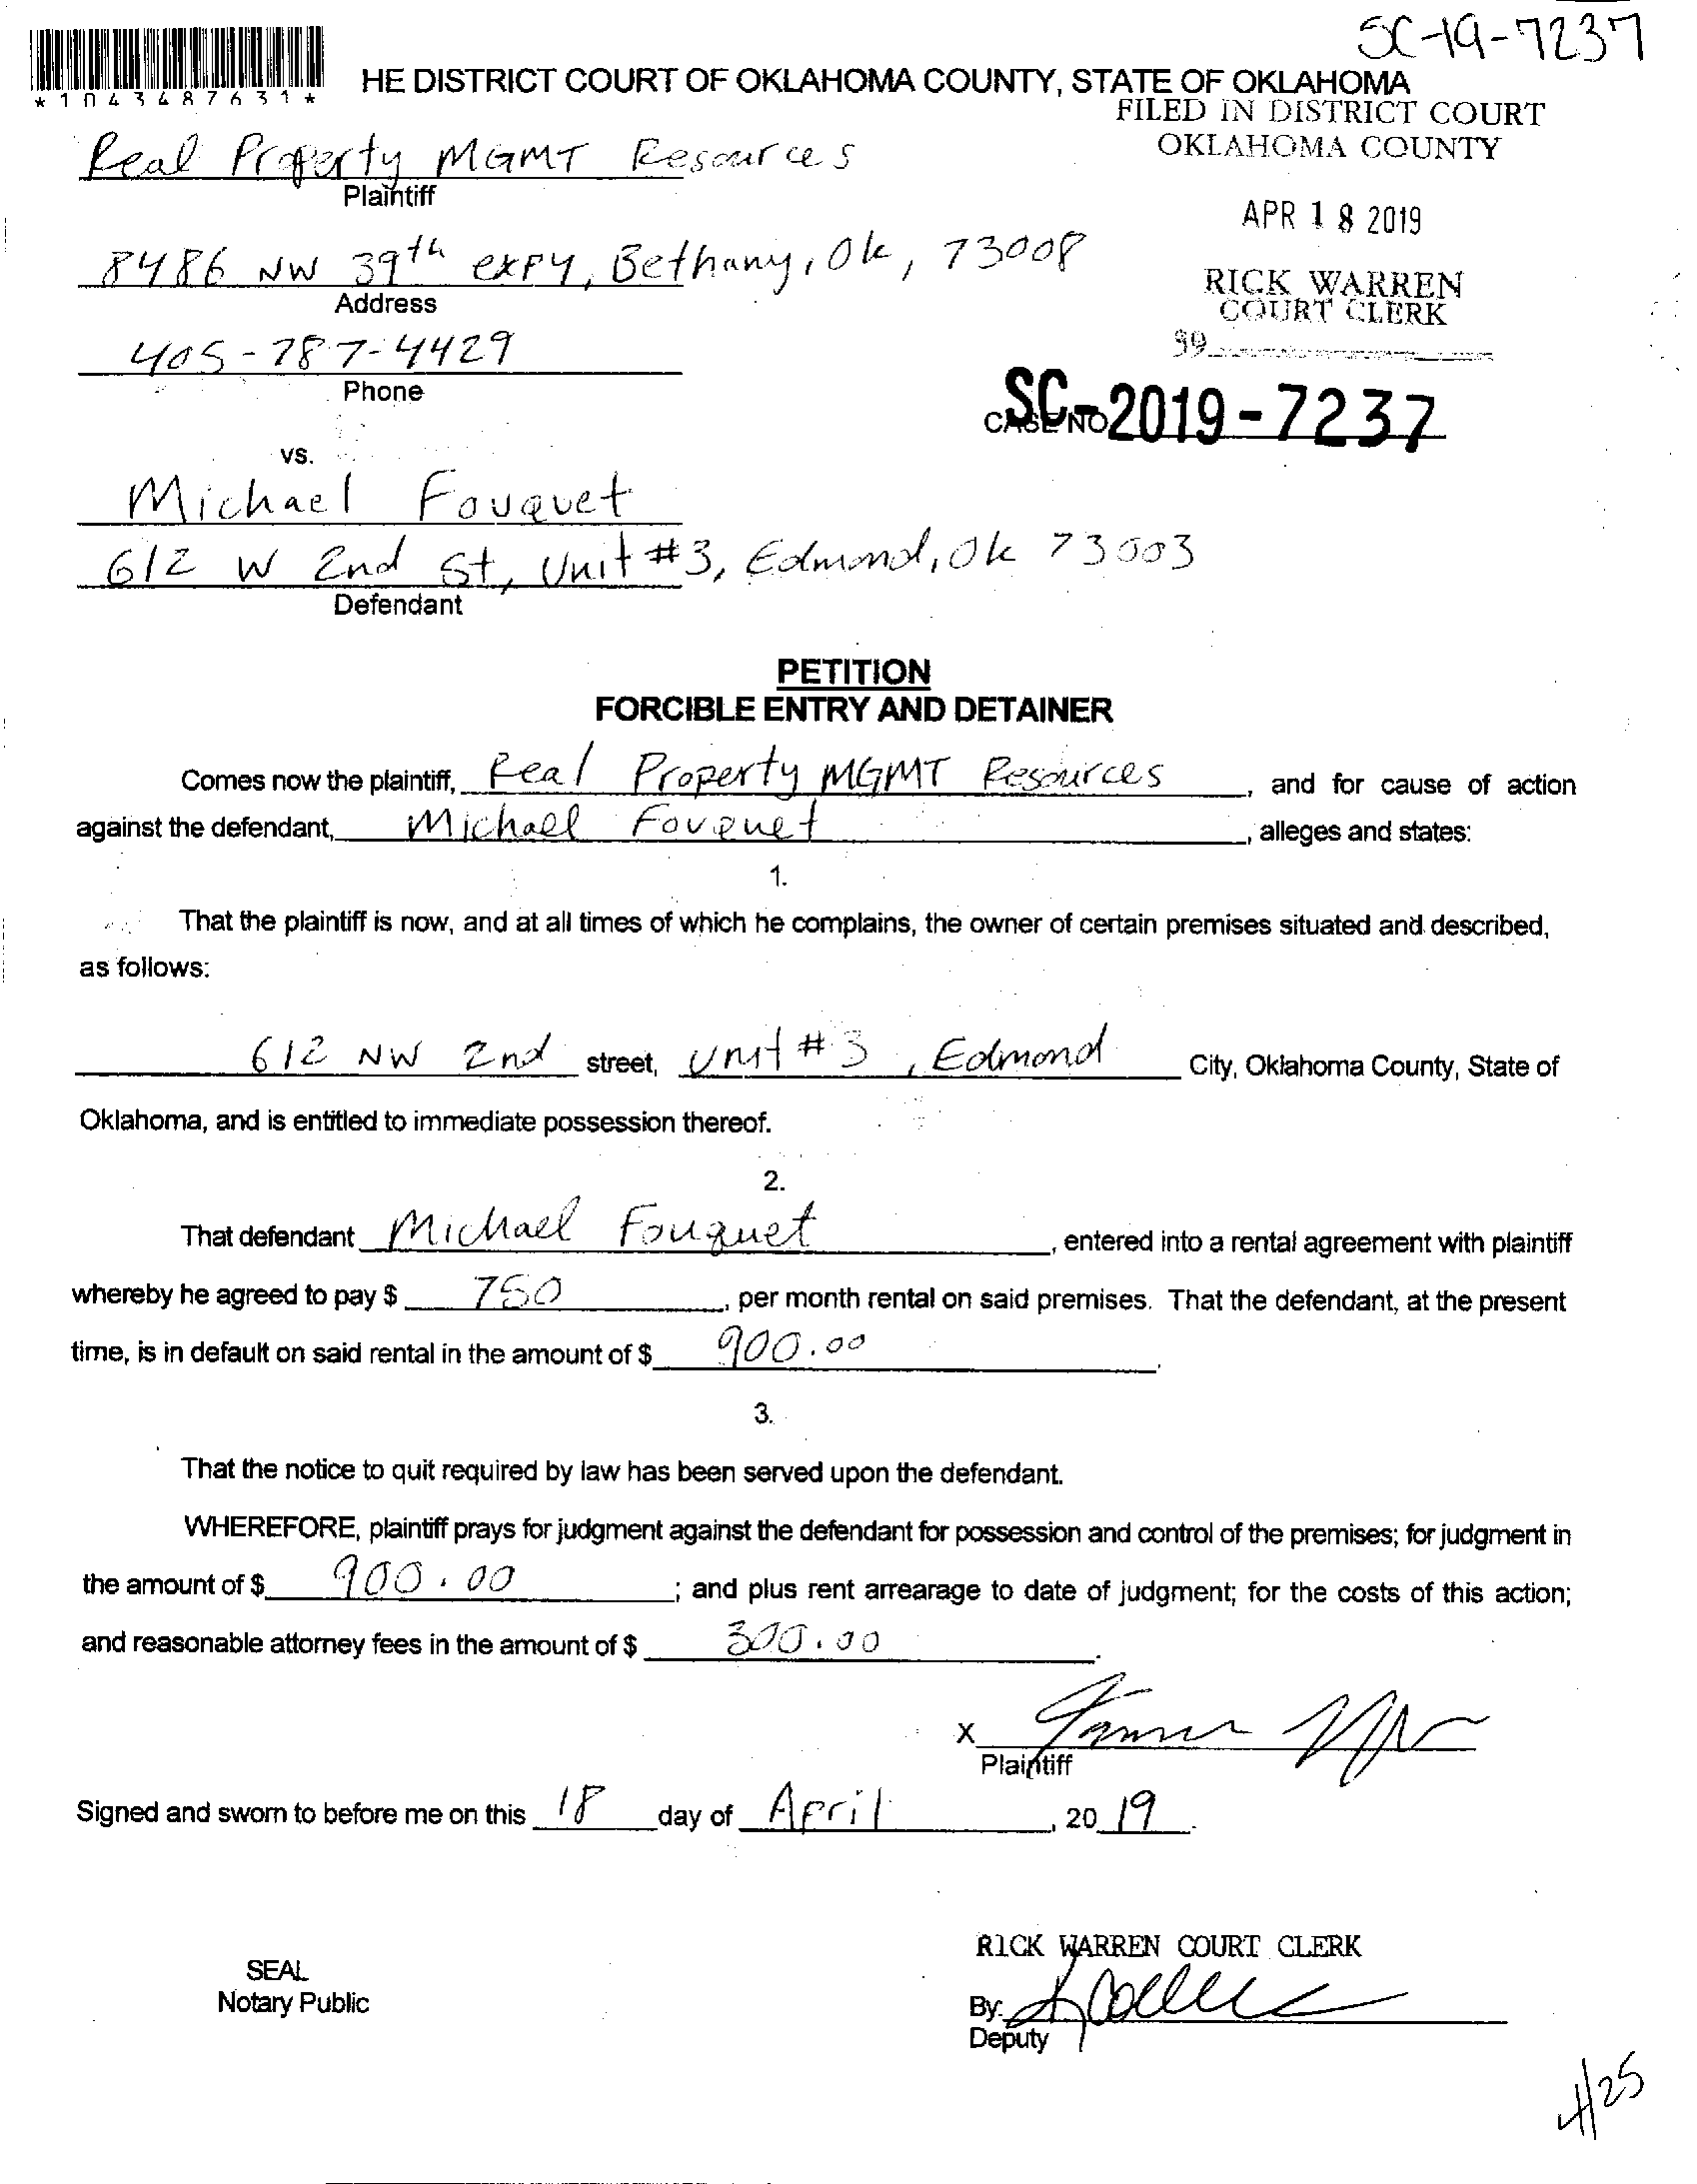 SC-19-7237
*1043487631*
HE DISTRICT COURT OF OKLAHOMA COUNTY, STATE OF OKLAHOMA
FILED IN DISTRICT COURT
OKLAHOMA COUNTY
Real Property MGMT Resources
Plaintiff
APR 18 2019
8486 NW 39th expy, Bethany, Ok, 73008
Address
RICK WARREN
COURT CLERK
405-787-4429
Phone
39
CASE NO SC-2019-7237
vs.
Michael Fouquet
612 W 2nd St, Unit #3, Edmond, Ok 73003
Defendant
PETITION
FORCIBLE ENTRY AND DETAINER
Comes now the plaintiff, Real Property MGMT Resources, and for cause of action
against the defendant, Michael Fouquet, alleges and states:
1.
That the plaintiff is now, and at all times of which he complains, the owner of certain premises situated and described,
as follows:
612 NW 2nd street, Unit #3, Edmond City, Oklahoma County, State of
Oklahoma, and is entitled to immediate possession thereof.
2.
That defendant Michael Fouquet, entered into a rental agreement with plaintiff
whereby he agreed to pay $ 750, per month rental on said premises. That the defendant, at the present
time, is in default on said rental in the amount of $ 900.00.
3.
That the notice to quit required by law has been served upon the defendant.
WHEREFORE, plaintiff prays for judgment against the defendant for possession and control of the premises; for judgment in
the amount of $ 900.00; and plus rent arrearage to date of judgment; for the costs of this action;
and reasonable attorney fees in the amount of $ 300.00.
X
Plaintiff
Signed and sworn to before me on this 18 day of April, 20 19.
RICK WARREN COURT CLERK
SEAL
Notary Public
By:
Deputy
4/25